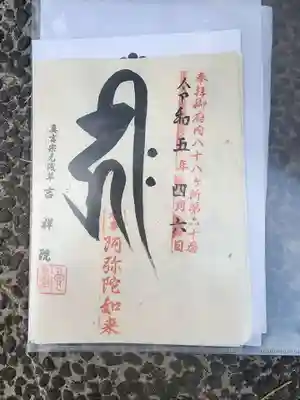 奉拝御府内八十八ヶ所第六十番
令和五年四月六日
𑖮𑖿𑖨𑖱𑖾
阿弥陀如来
真言宗元浅草 吉祥院